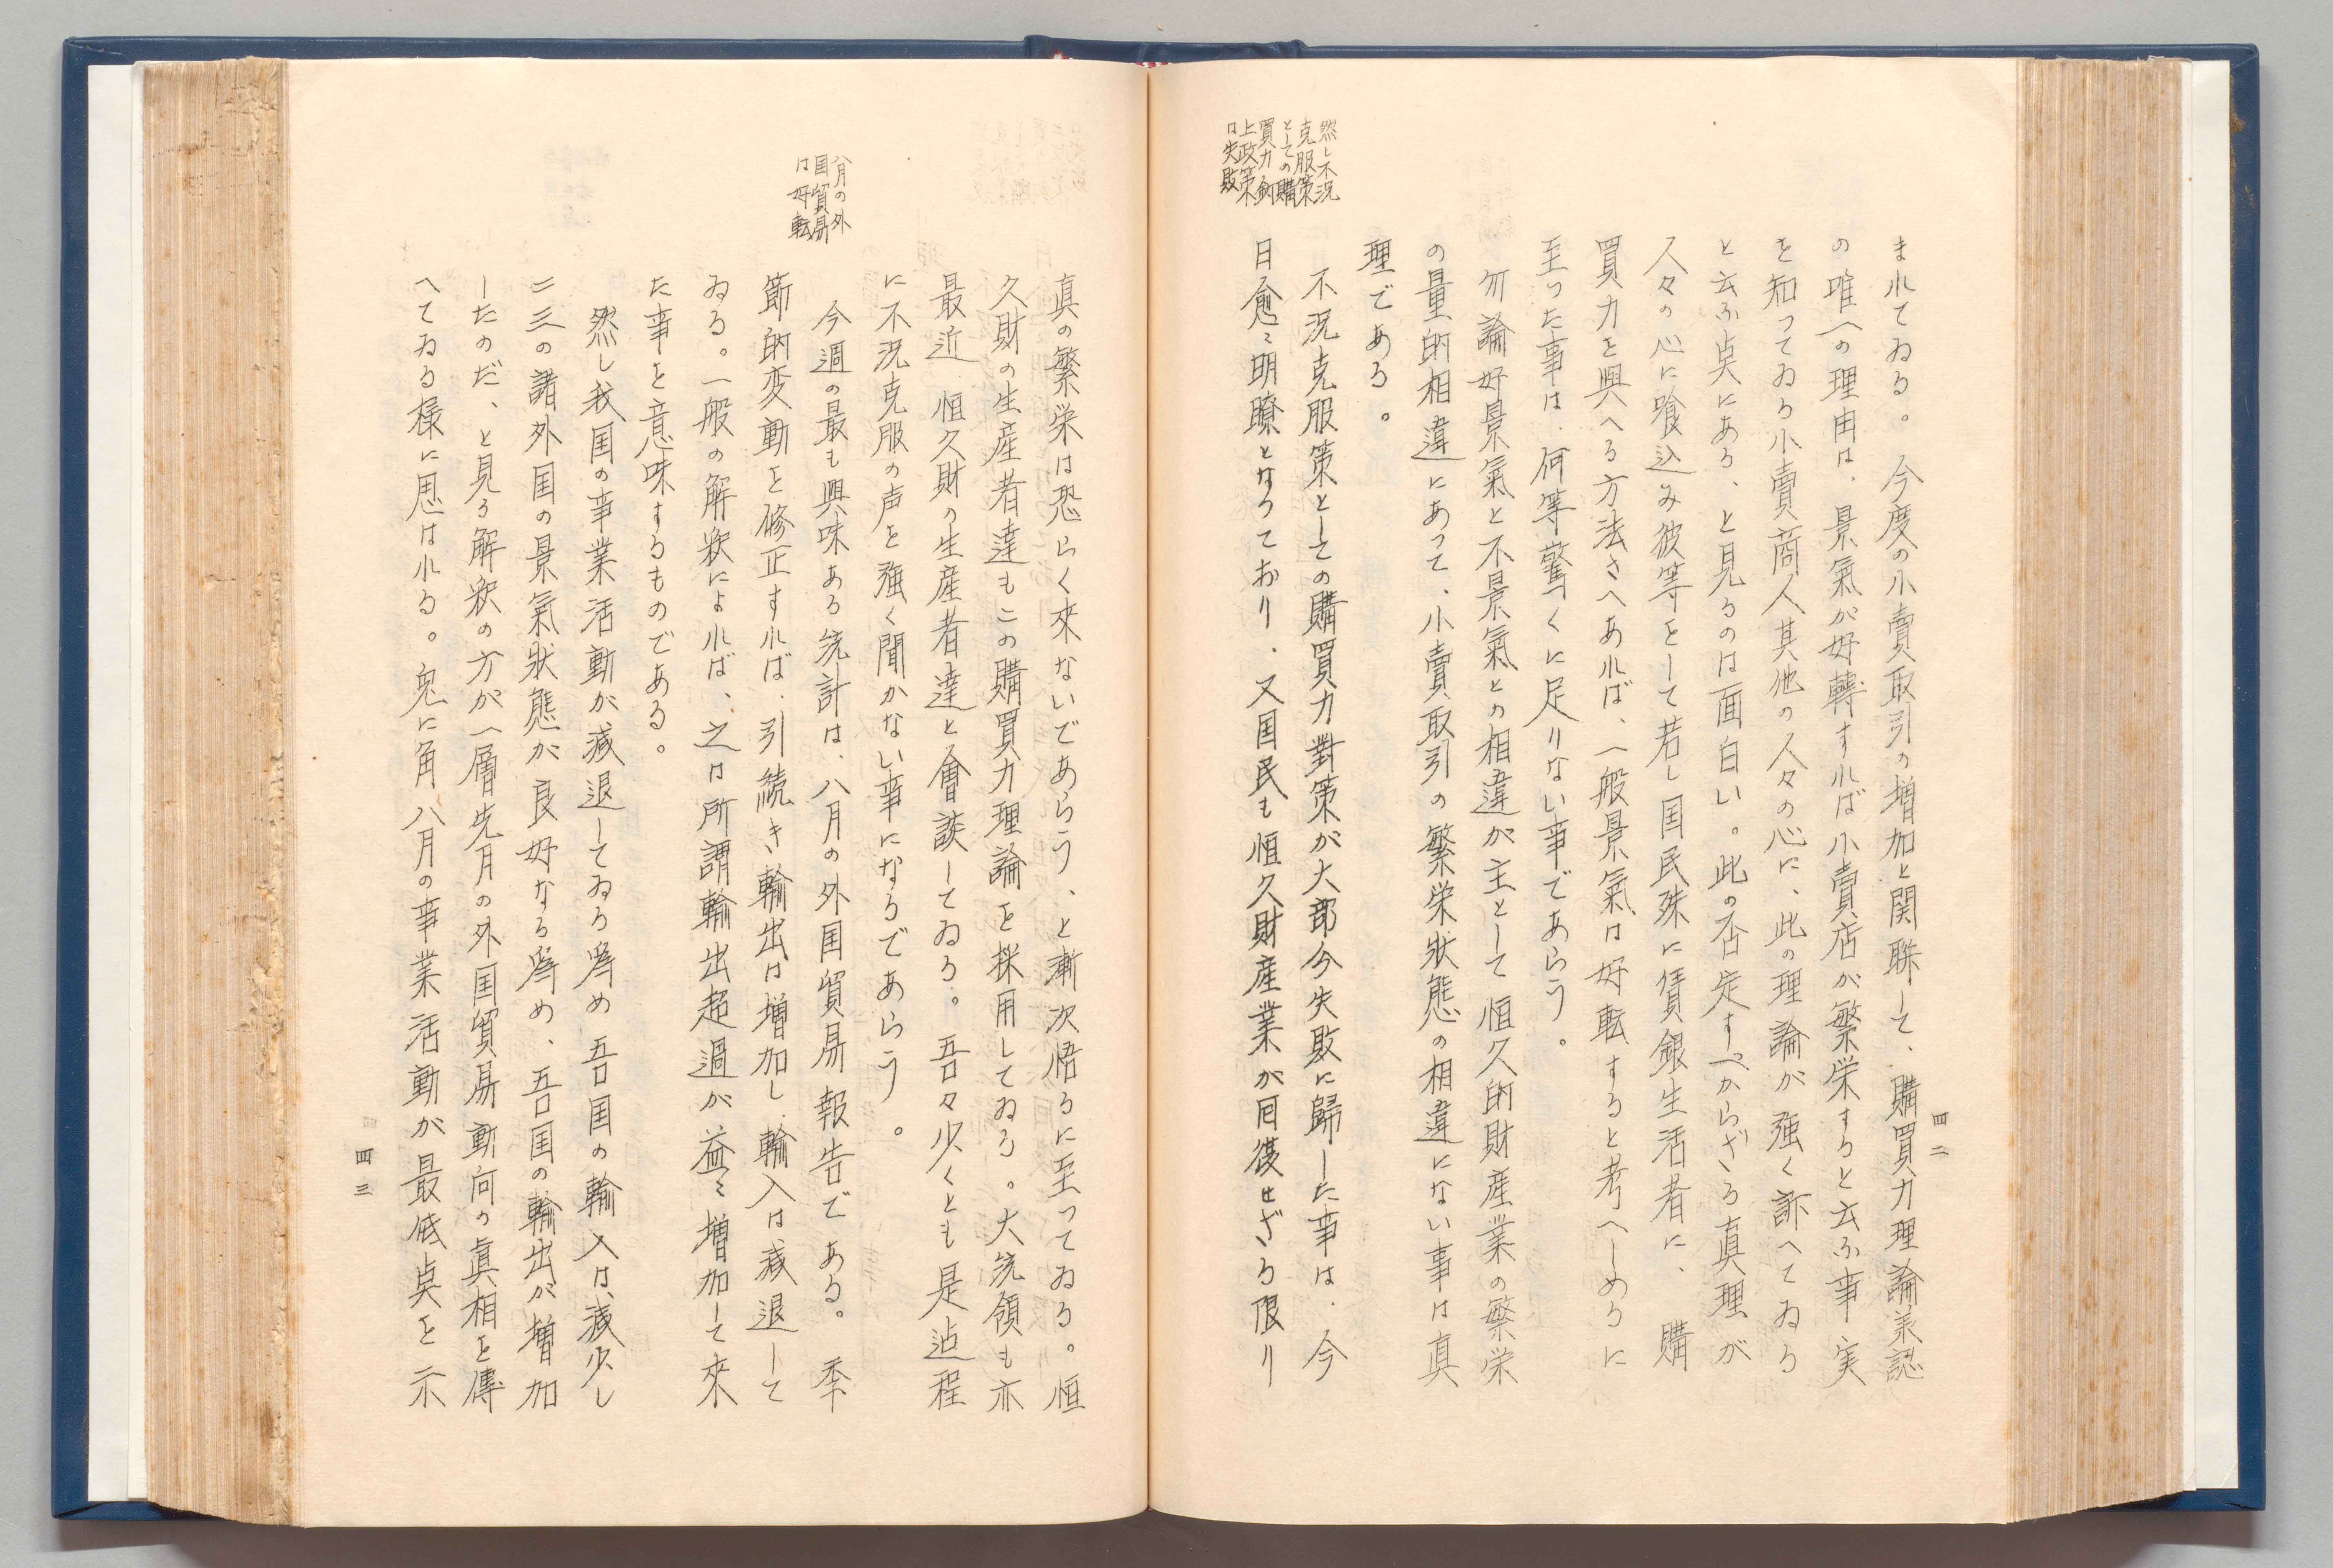 まれてゐる。今度の小賣取引の増加と関聯して、購買力理論羕認
の唯一の理由は、景氣が好轉すれば小賣店が繁栄すると云ふ事実
を知ってゐる小賣商人其他の人々の心に、此の理論が強く訴へてゐる
と云ふ点にある、と見るのは面白い。此の否定すべからざる真理が
人々の心に喰込み彼等をして若し国民殊に賃銀生活者に、購
買力を與へる方法さへあれば、一般景氣は好転すると考へしめるに
至った事は、何等驚くに足りない事であらう。
勿論好景氣と不景氣との相違が主として恒久的財産業の繁栄
の量的相違にあって、小賣取引の繁栄狀態の相違にない事は真
理である。
然し不況
克服策
としての購
買力創
上政策
は失敗
不況克服策としての購買力對策が大部今失敗に歸した事は、今
日愈〻明瞭となつており、又国民も恒久財産業が回復せざる限り
四二
真の繁栄は恐らく來ないであらう、と漸次悟るに至ってゐる。恒
久財の生産者達もこの購買力理論を採用してゐる。大統領も亦
最近、恒久財の生産者達と會談してゐる。吾々少くとも是迠程
に不況克服の声を強く聞かない事になるであらう。
八月の外
国貿易
は好転
今週の最も興味ある統計は、八月の外国貿易報告である。季
節的変動を修正すれば、引続き輸出は増加し、輸入は減退して
ゐる。一般の解釈によれば、之は所謂輸出超過が益〻増加して來
た事を意味するものである。
然し我国の事業活動が減退してゐる為め吾国の輸入は減少し
二三の諸外国の景氣狀態が良好なる為め、吾国の輸出が増加
したのだ、と見る解釈の方が一層先月の外国貿易動向の眞相を傳
へてゐる様に思はれる。兎に角八月の事業活動が最低点を示
四三